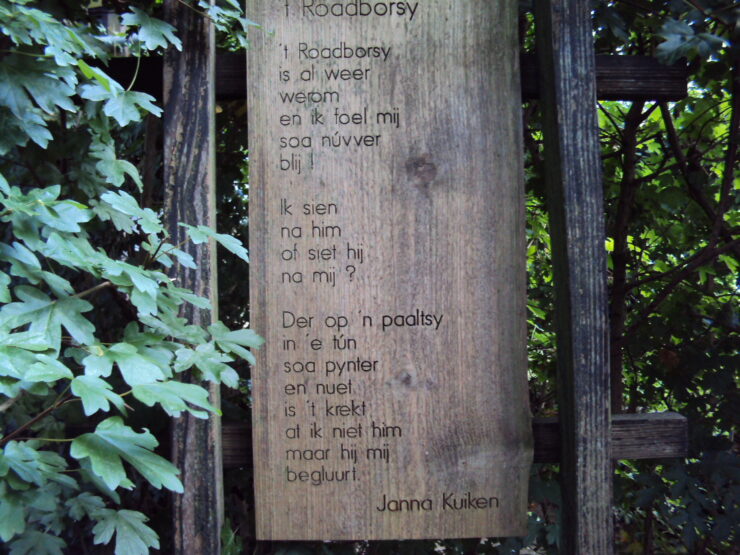 't Roadborsy
't Roadborsy
is al weer
werom
en ik foel mij
soa núvver
blij !
Ik sien
na him
of siet hij
na mij ?
Der op 'n paaltsy
in 'e tún
soa pynter
en nuet
is 't krekt
at ik niet him
maar hij mij
begluurt.
Janna Kuiken